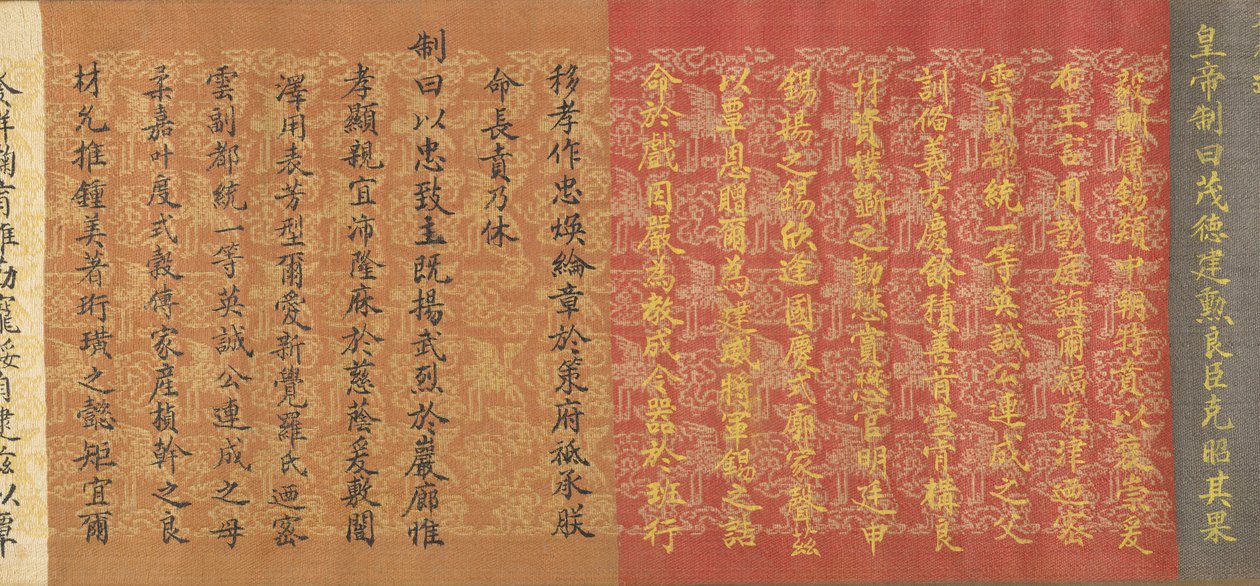 皇帝制曰茂德建勲良臣克昭其果
毅酬庸錫類中朝特賁以褒崇爰
布王言用彰庭誨爾福克津迺密
雲副都統一等英誠公連成之父
訓俻義方慶餘積善肯堂肯構良
材資樸斵之勤懋賞懋官明廷申
錫揚之錫欣逢國慶式廓家聲兹
以覃恩贈爾為建威將軍錫之誥
命於戲因嚴為教成令器於班行
移孝作忠煥綸章於策府祗承朕
命長賁乃休
制曰以忠致主既揚武烈於巖廊惟
孝顯親宜沛隆庥於慈蔭爰敷閫
澤用表芳型爾愛新覺羅氏迺密
雲副都統一等英誠公連成之母
柔嘉叶度式穀傳家產楨幹之良
材允推鍾美著珩璜之懿矩宜爾